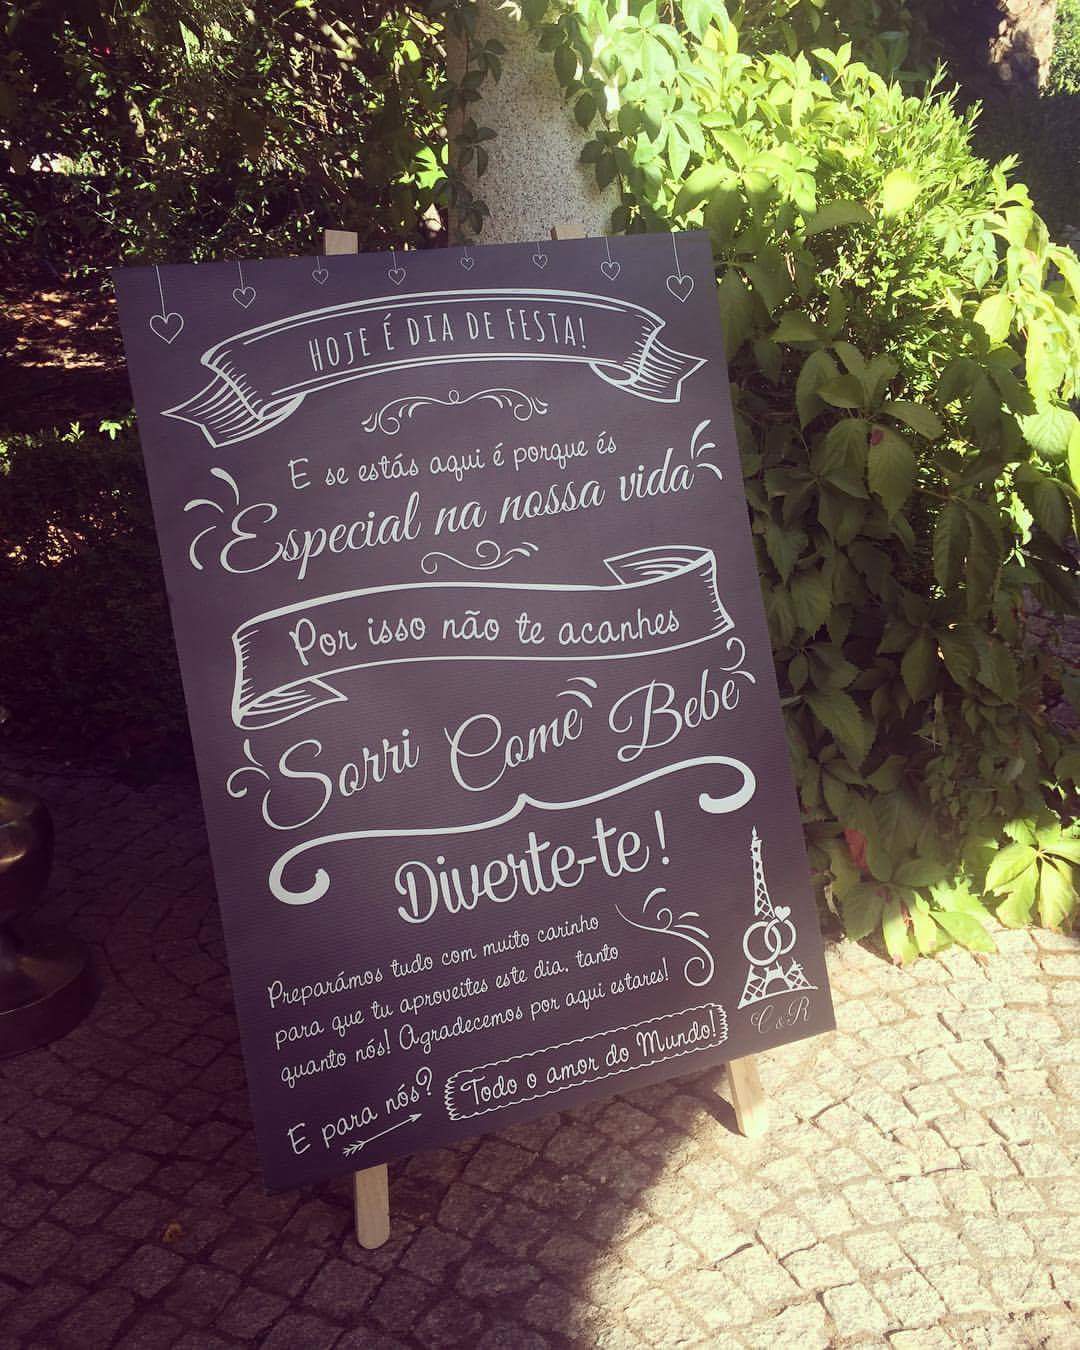 HOJE É DIA DE FESTA!
E se estás aqui é porque és
Especial na nossa vida
Por isso não te acanhes
Sorri Come Bebe
Diverte-te!
Preparámos tudo com muito carinho
para que tu aproveites este dia, tanto
quanto nós! Agradecemos por aqui estares!
E para nós? Todo o amor do Mundo!
C & R